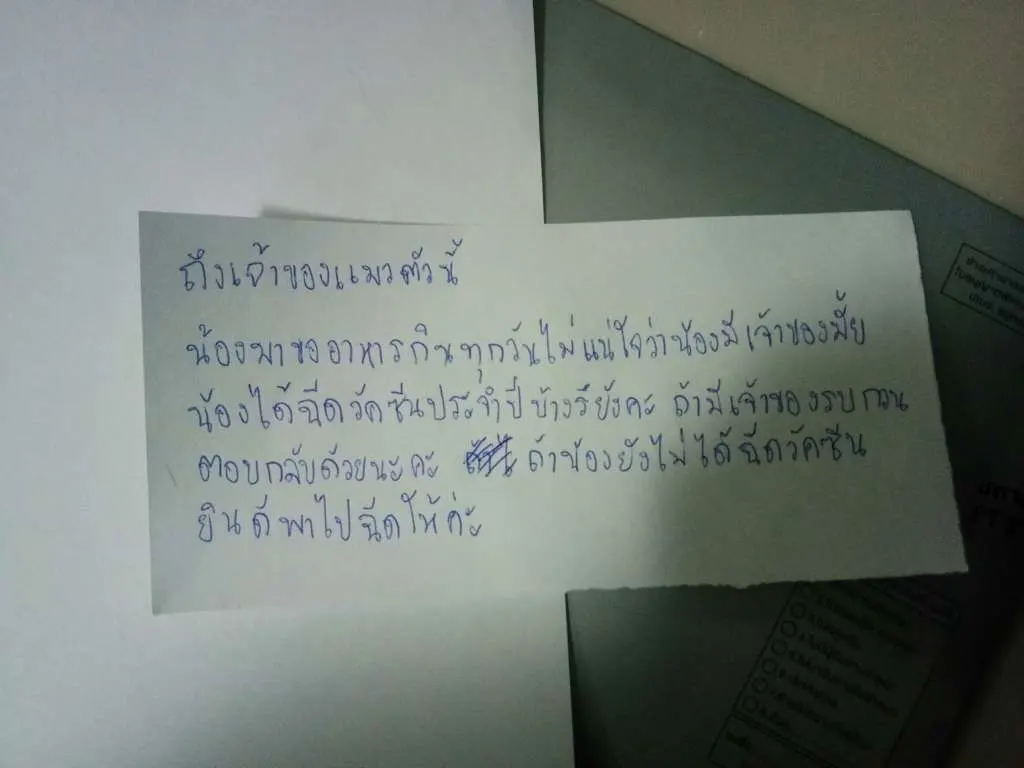 ถึงเจ้าของแมวตัวนี้
น้องมาขออาหารกินทุกวันไม่แน่ใจว่าน้องมีเจ้าของมั้ย
น้องได้ฉีดวัคซีนประจำปีบ้างรึยังคะ ถ้ามีเจ้าของรบกวน
ตอบกลับด้วยนะคะ ถ้าน้องยังไม่ได้ฉีดวัคซีน
ยินดีพาไปฉีดให้ค่ะ